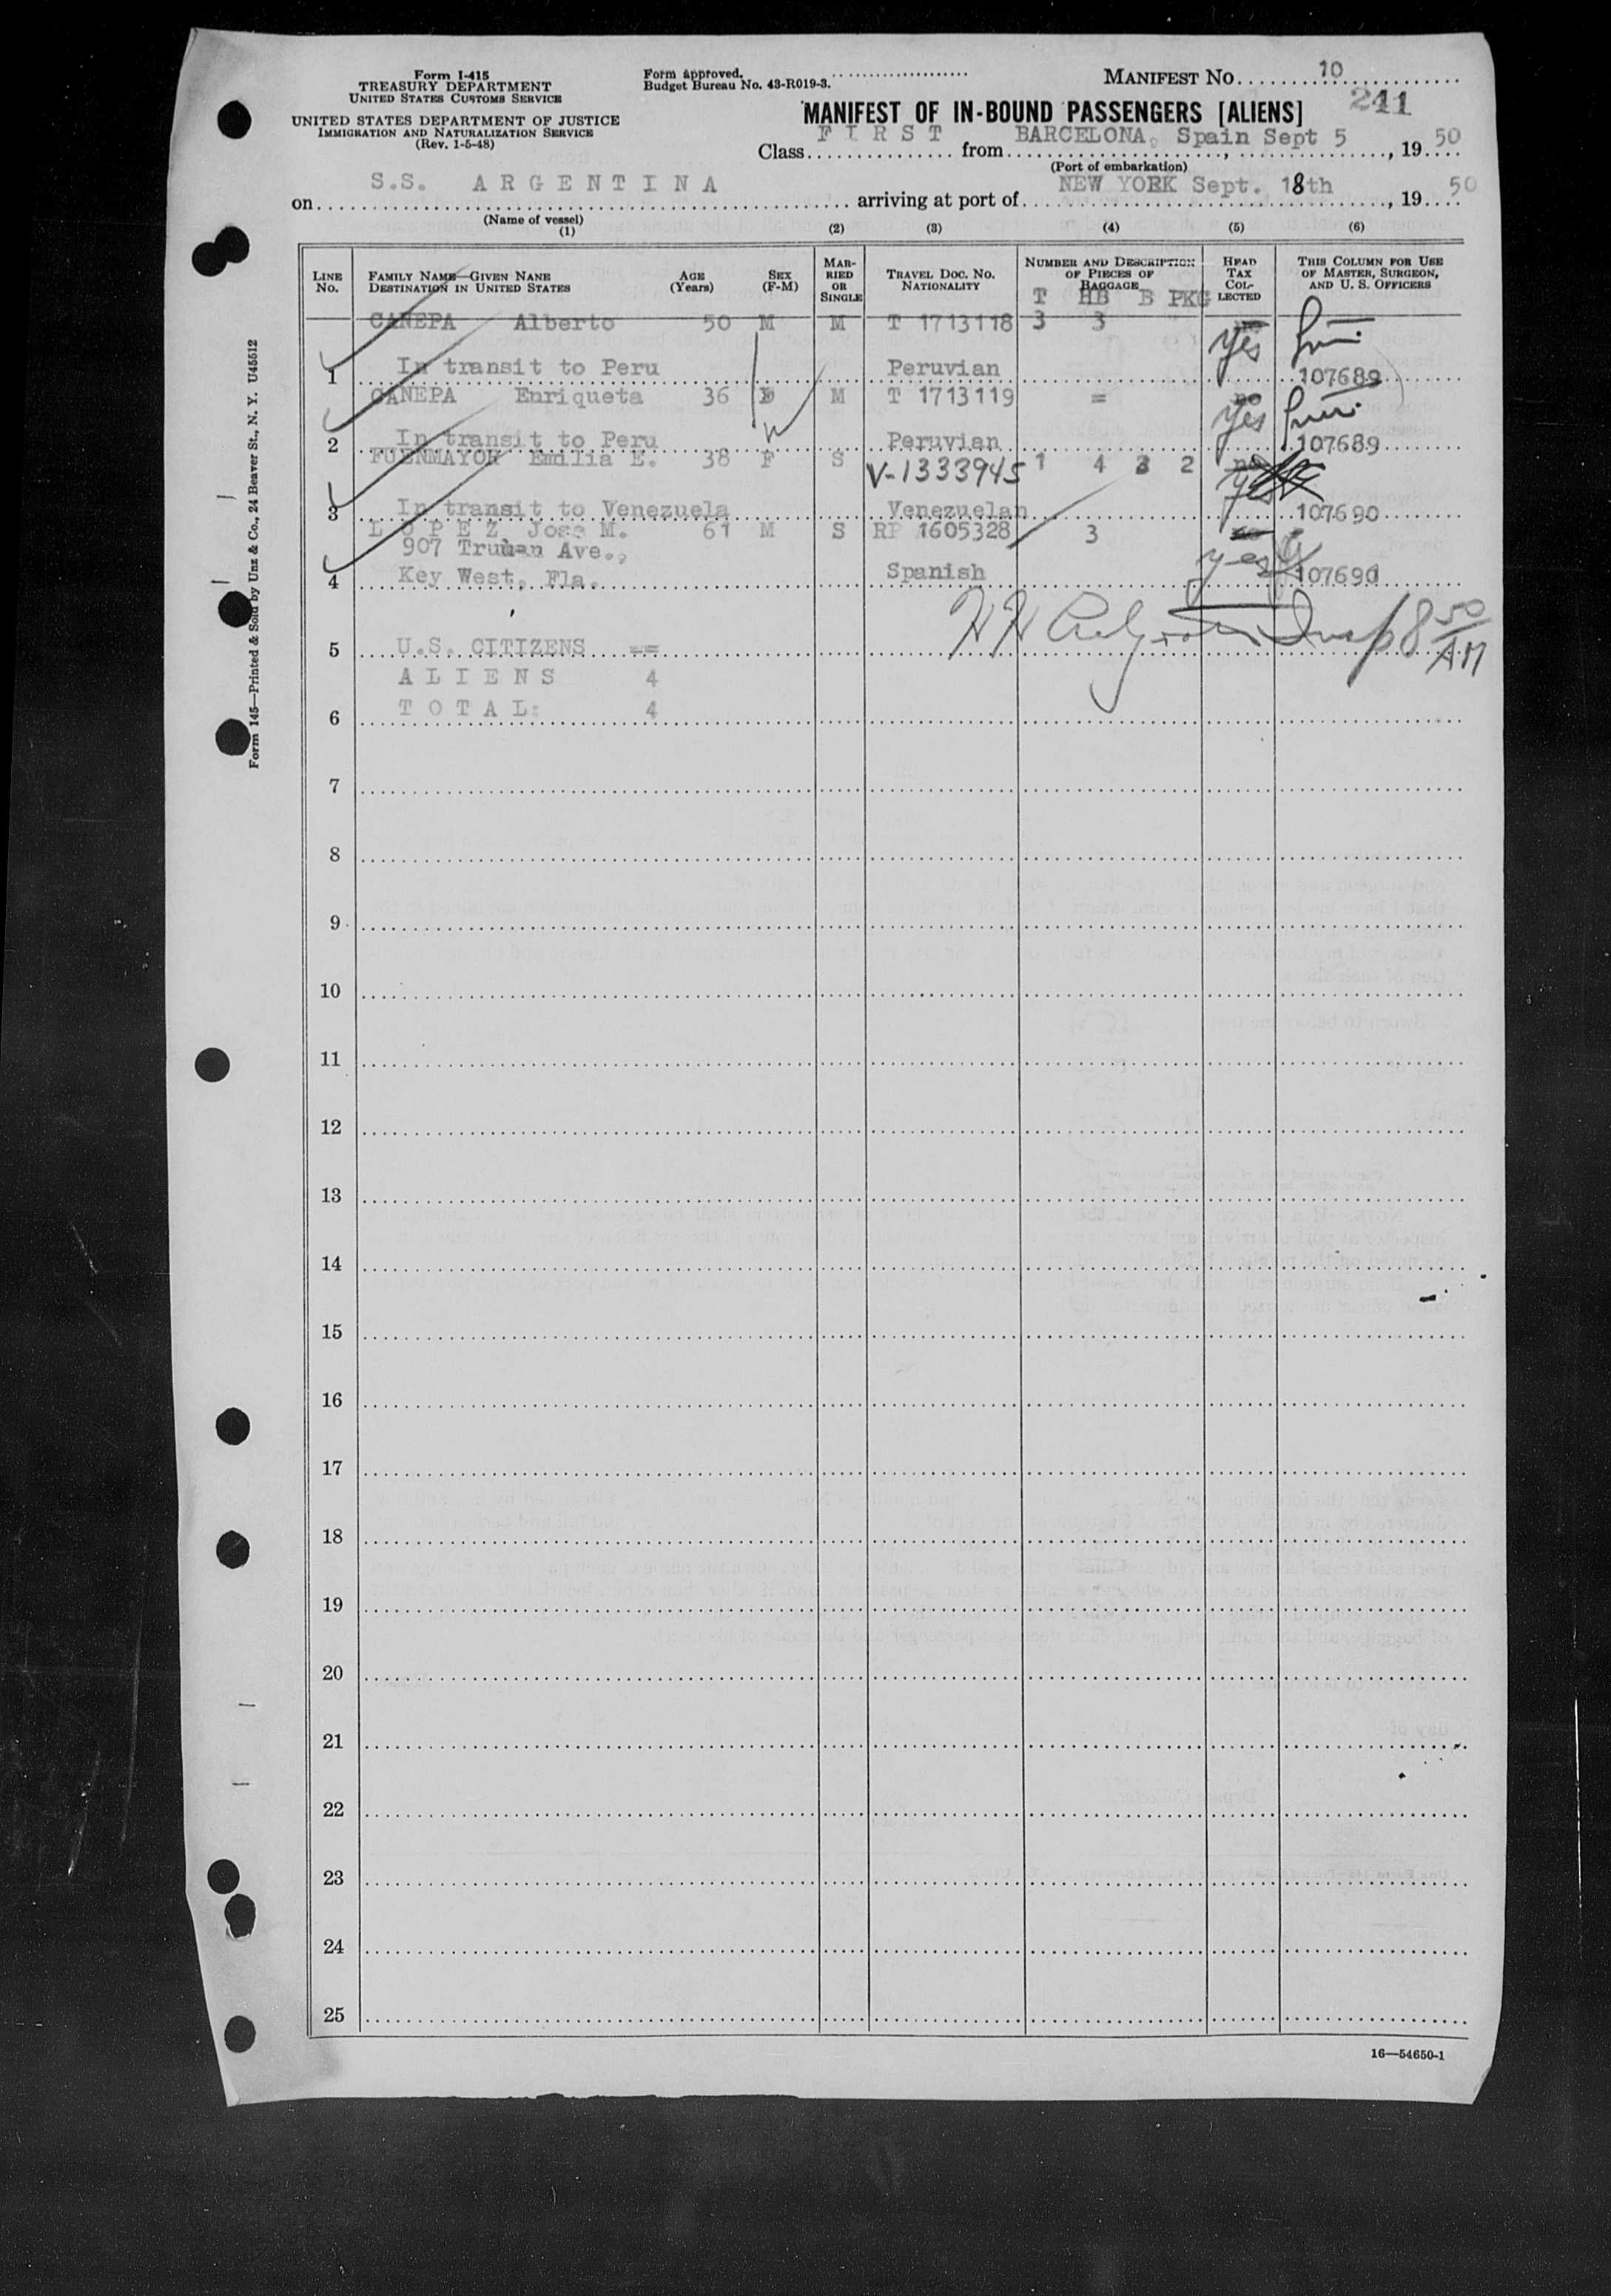 Form I-415
TREASURY DEPARTMENT
UNITED STATES CUSTOMS SERVICE
UNITED STATES DEPARTMENT OF JUSTICE
IMMIGRATION AND NATURALIZATION SERVICE
(Rev. 1-5-48)
Form approved.
Budget Bureau No. 43-R019-3.
MANIFEST NO. 10
241
MANIFEST OF IN-BOUND PASSENGERS [ALIENS]
Class FIRST from BARCELONA, Spain Sept 5, 1950
(Port of embarkation)
on S.S. ARGENTINA arriving at port of NEW YORK Sept. 18th, 1950
(Name of vessel)
(1) (2) (3) (4) (5) (6)
LINE NO.
FAMILY NAME—GIVEN NANE
DESTINATION IN UNITED STATES
AGE (Years)
SEX (F-M)
MARRIED OR SINGLE
TRAVEL DOC. NO. NATIONALITY
NUMBER AND DESCRIPTION OF PIECES OF BAGGAGE
T HB B PKG
HEAD TAX COLLECTED
THIS COLUMN FOR USE OF MASTER, SURGEON, AND U. S. OFFICERS
CANEPA Alberto 50 M M T 1713118 3 3 yes
1 In transit to Peru Peruvian 107689
CANEPA Enriqueta 36 M T 1713119 = no yes
2 In transit to Peru Peruvian 107689
FUENMAYOR Emilia E. 38 F S V-1333945 1 4 3 2 no yes
3 In transit to Venezuela Venezuelan 107690
LOPEZ Jose M. 61 M S RP 1605328 3 yes
907 Truman Ave.,
4 Key West, Fla. Spanish 107690
Insp 8 50 AM
5 U.S. CITIZENS ==
ALIENS 4
6 TOTAL: 4
7
8
9
10
11
12
13
14
15
16
17
18
19
20
21
22
23
24
25
16—54650-1
Form 145—Printed & Sold by Unz & Co., 24 Beaver St., N. Y. U45512